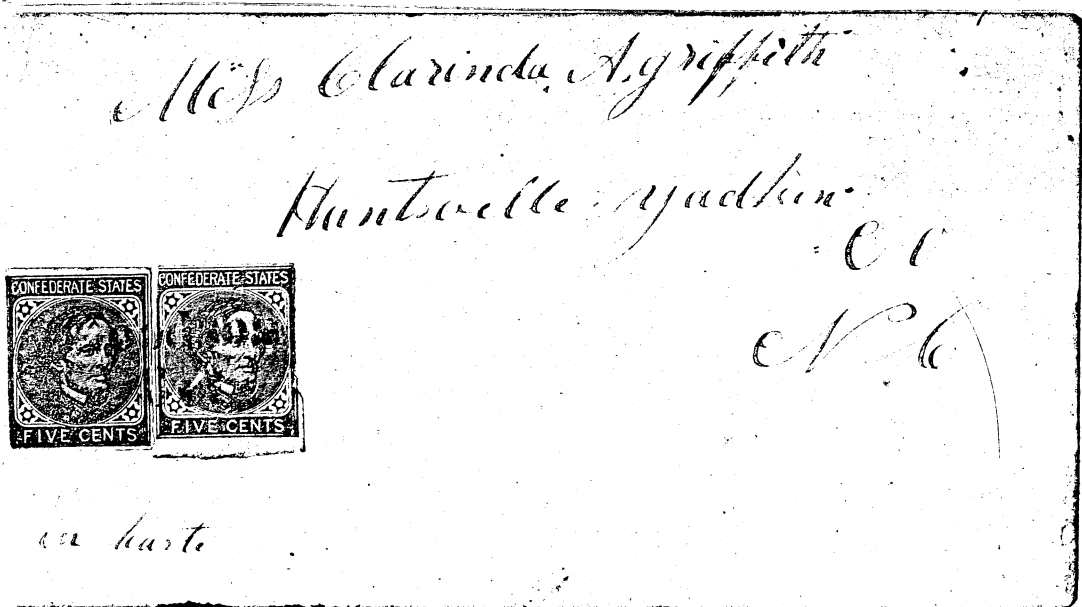 Miss Clarinda A. Griffith
Huntsville Yadkin
Co
N. C
CONFEDERATE STATES
FIVE CENTS
CONFEDERATE STATES
FIVE CENTS
in haste